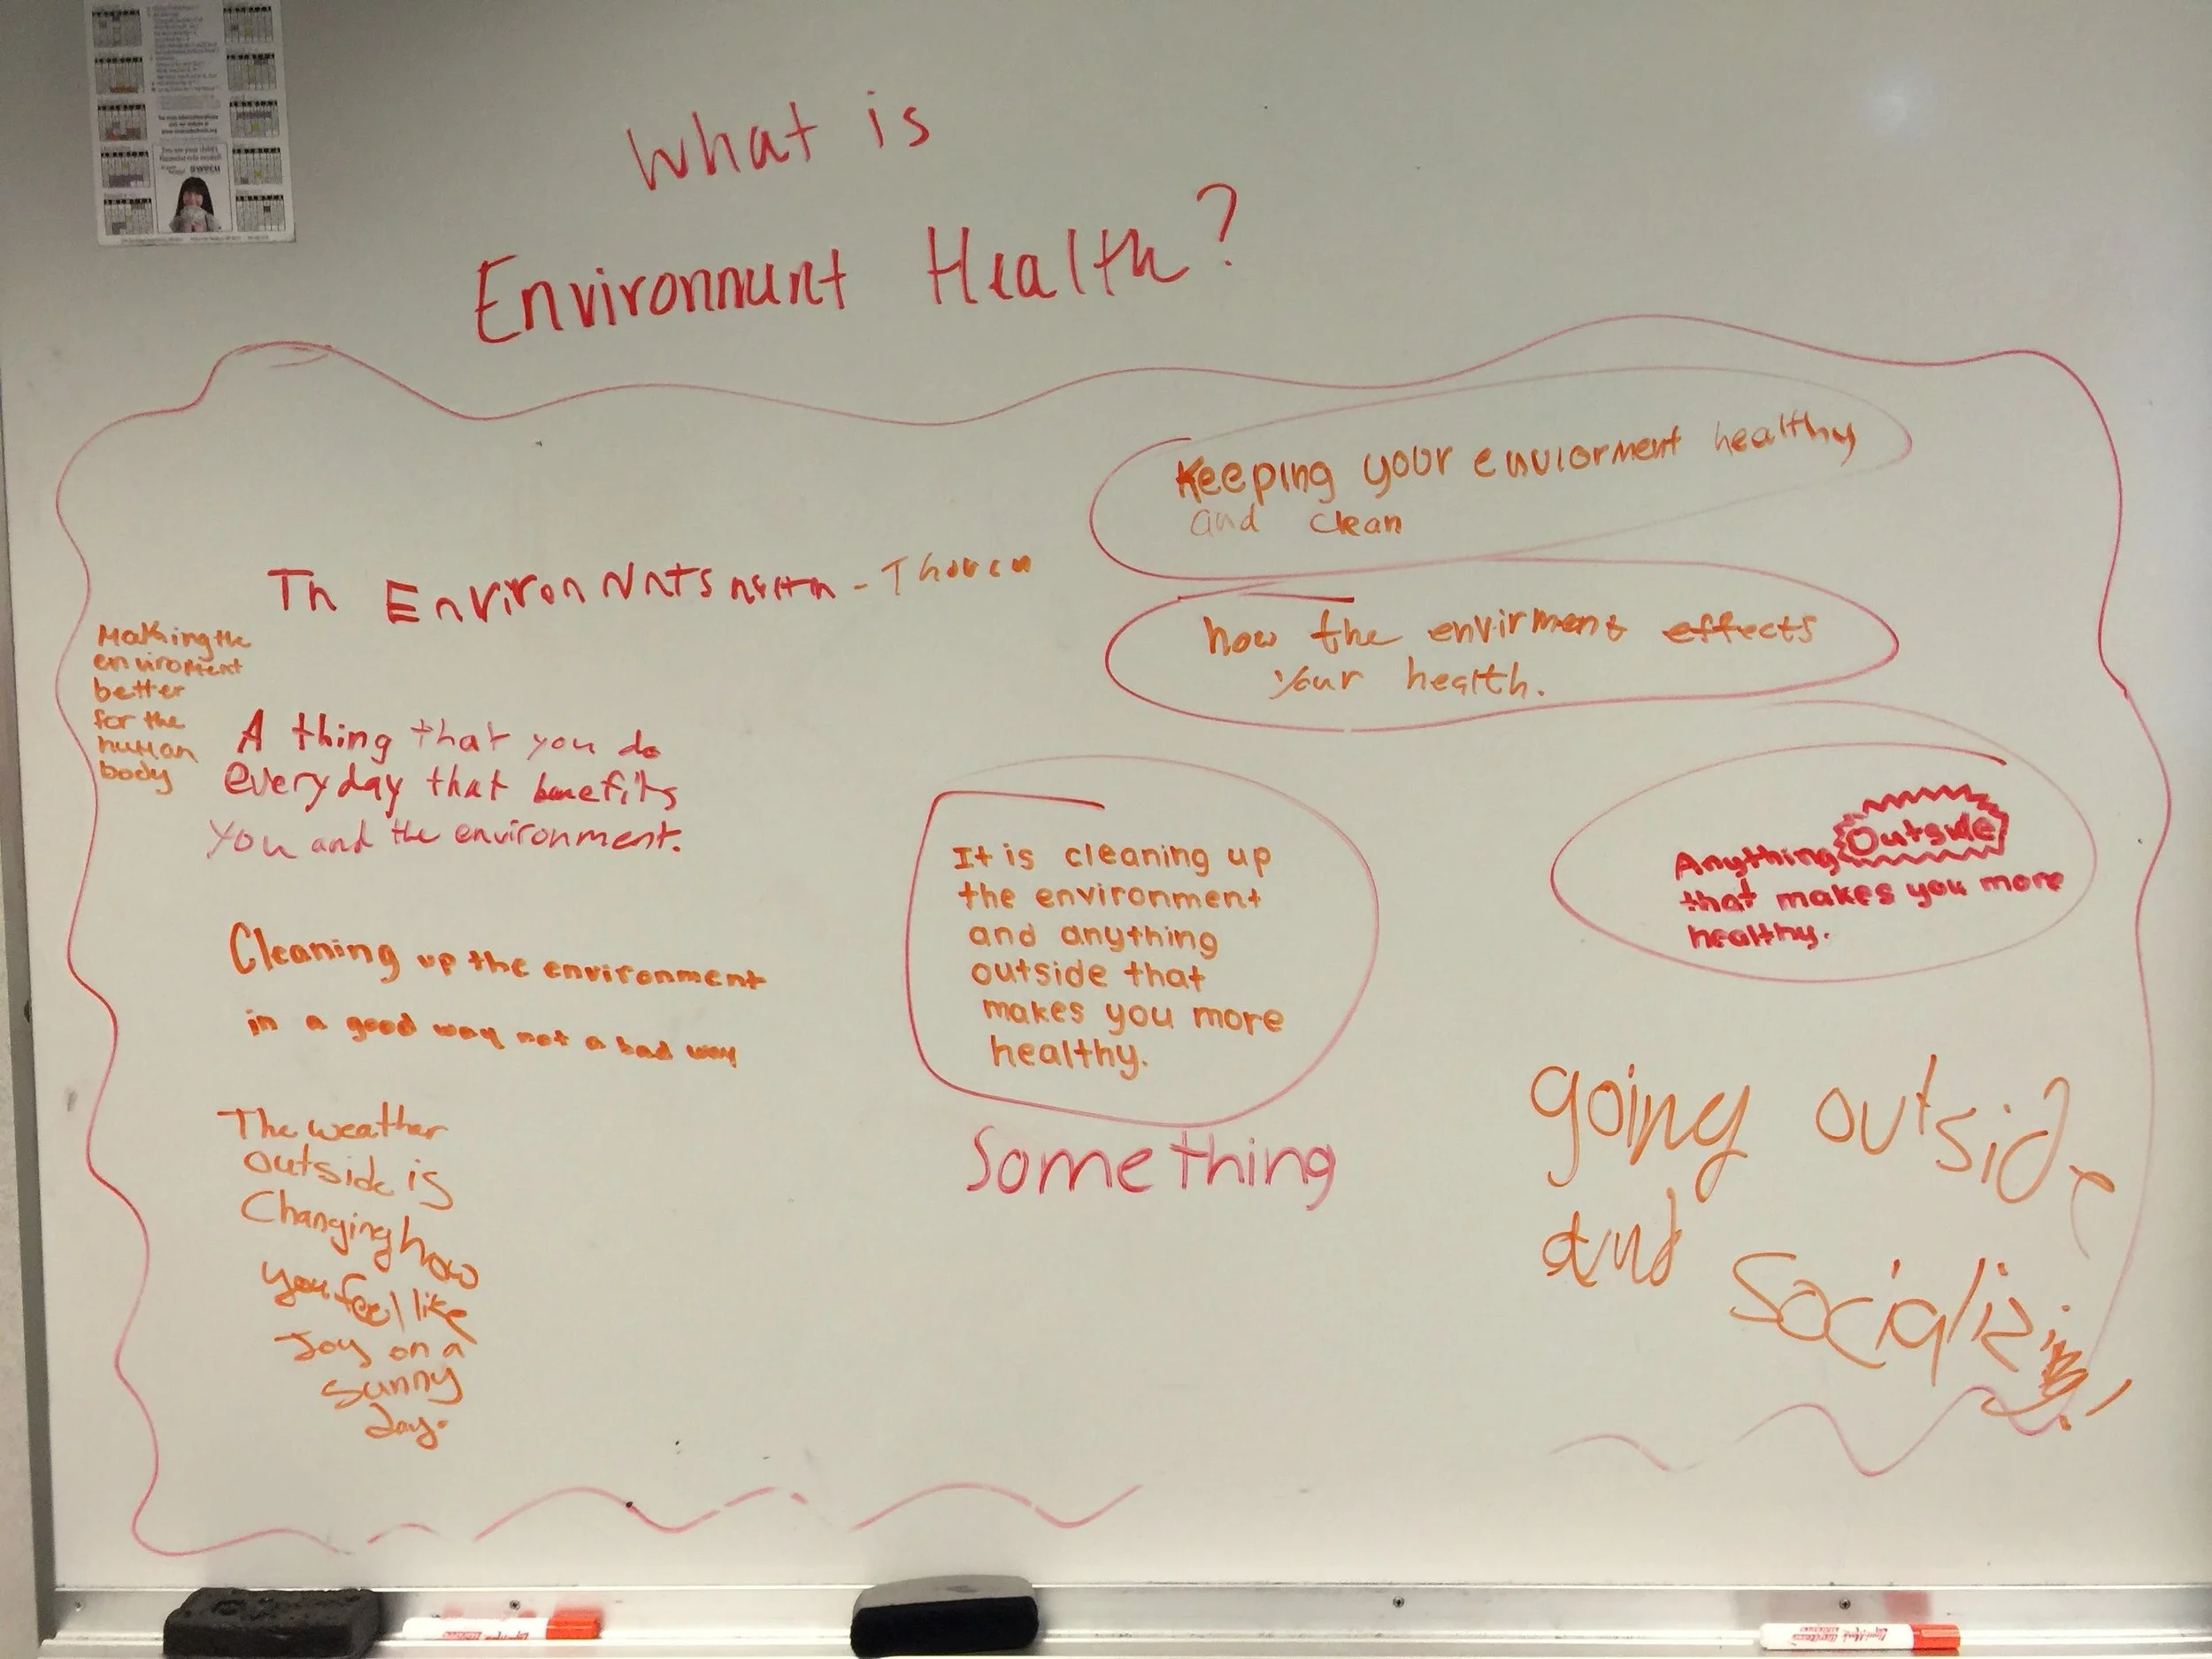 What is
Environment Health?
Keeping your enviorment healthy
and clean
Th EnvironNnts
how the envirment effects
your health.
Making the
enviroment
better
for the
human
body
A thing that you do
everyday that benefits
you and the environment.
It is cleaning up
the environment
and anything
outside that
makes you more
healthy.
Anything Outside
that makes you more
healthy.
Cleaning up the environment
in a good way not a bad way
Something
going outside
and
Socializing!
The weather
outside is
Changing how
you feel like
Joy on a
sunny
day.